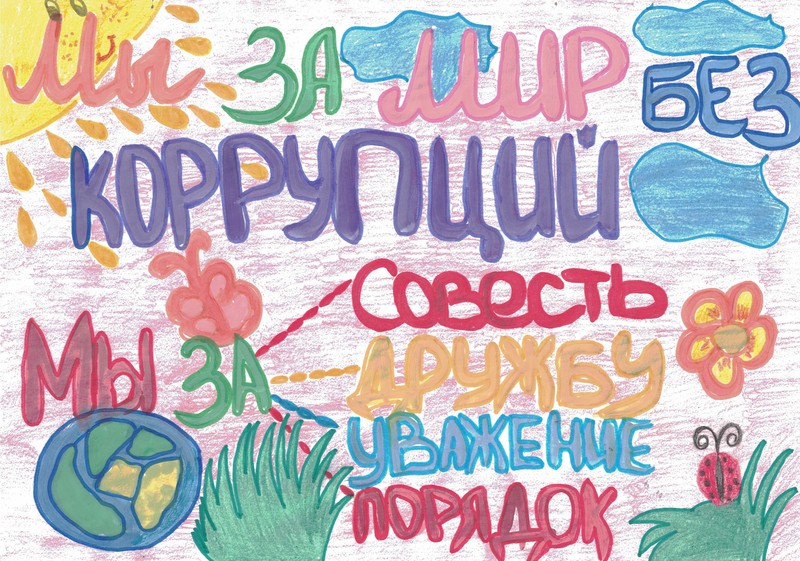 Мы ЗА МИР БЕЗ
КОРРУПЦИЙ
МЫ ЗА
СОВЕСТЬ
ДРУЖБУ
УВАЖЕНИЕ
ПОРЯДОК